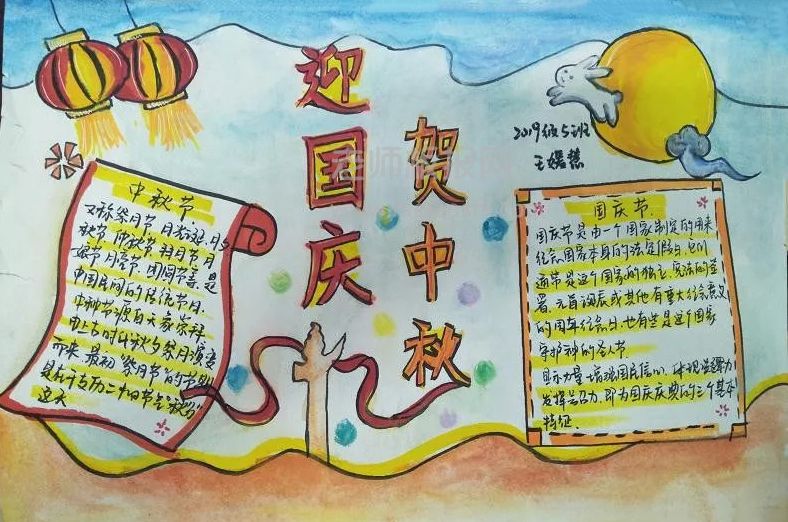 迎国庆
贺中秋
2019级5班
中秋节
又称祭月节、月光诞、月夕
秋节、仲秋节、拜月节、月
娘节、月亮节、团圆节等,是
中国民间的传统节日.
中秋节源自天象崇拜
由上古时代秋夕祭月演变
而来.最初“祭月节”的节期
是在干支历二十四节气“秋分”
这天
国庆节
国庆节是由一个国家制定的用来
纪念国家本身的法定假日.它们
通常是这个国家的独立、宪法的签
署、元首诞辰或其他有重大纪念意义
的周年纪念日.也有些是这个国家
守护神的圣人节.
显示力量、增强国民信心,体现凝聚力
发挥号召力,即为国庆庆典的三个基本
特征.